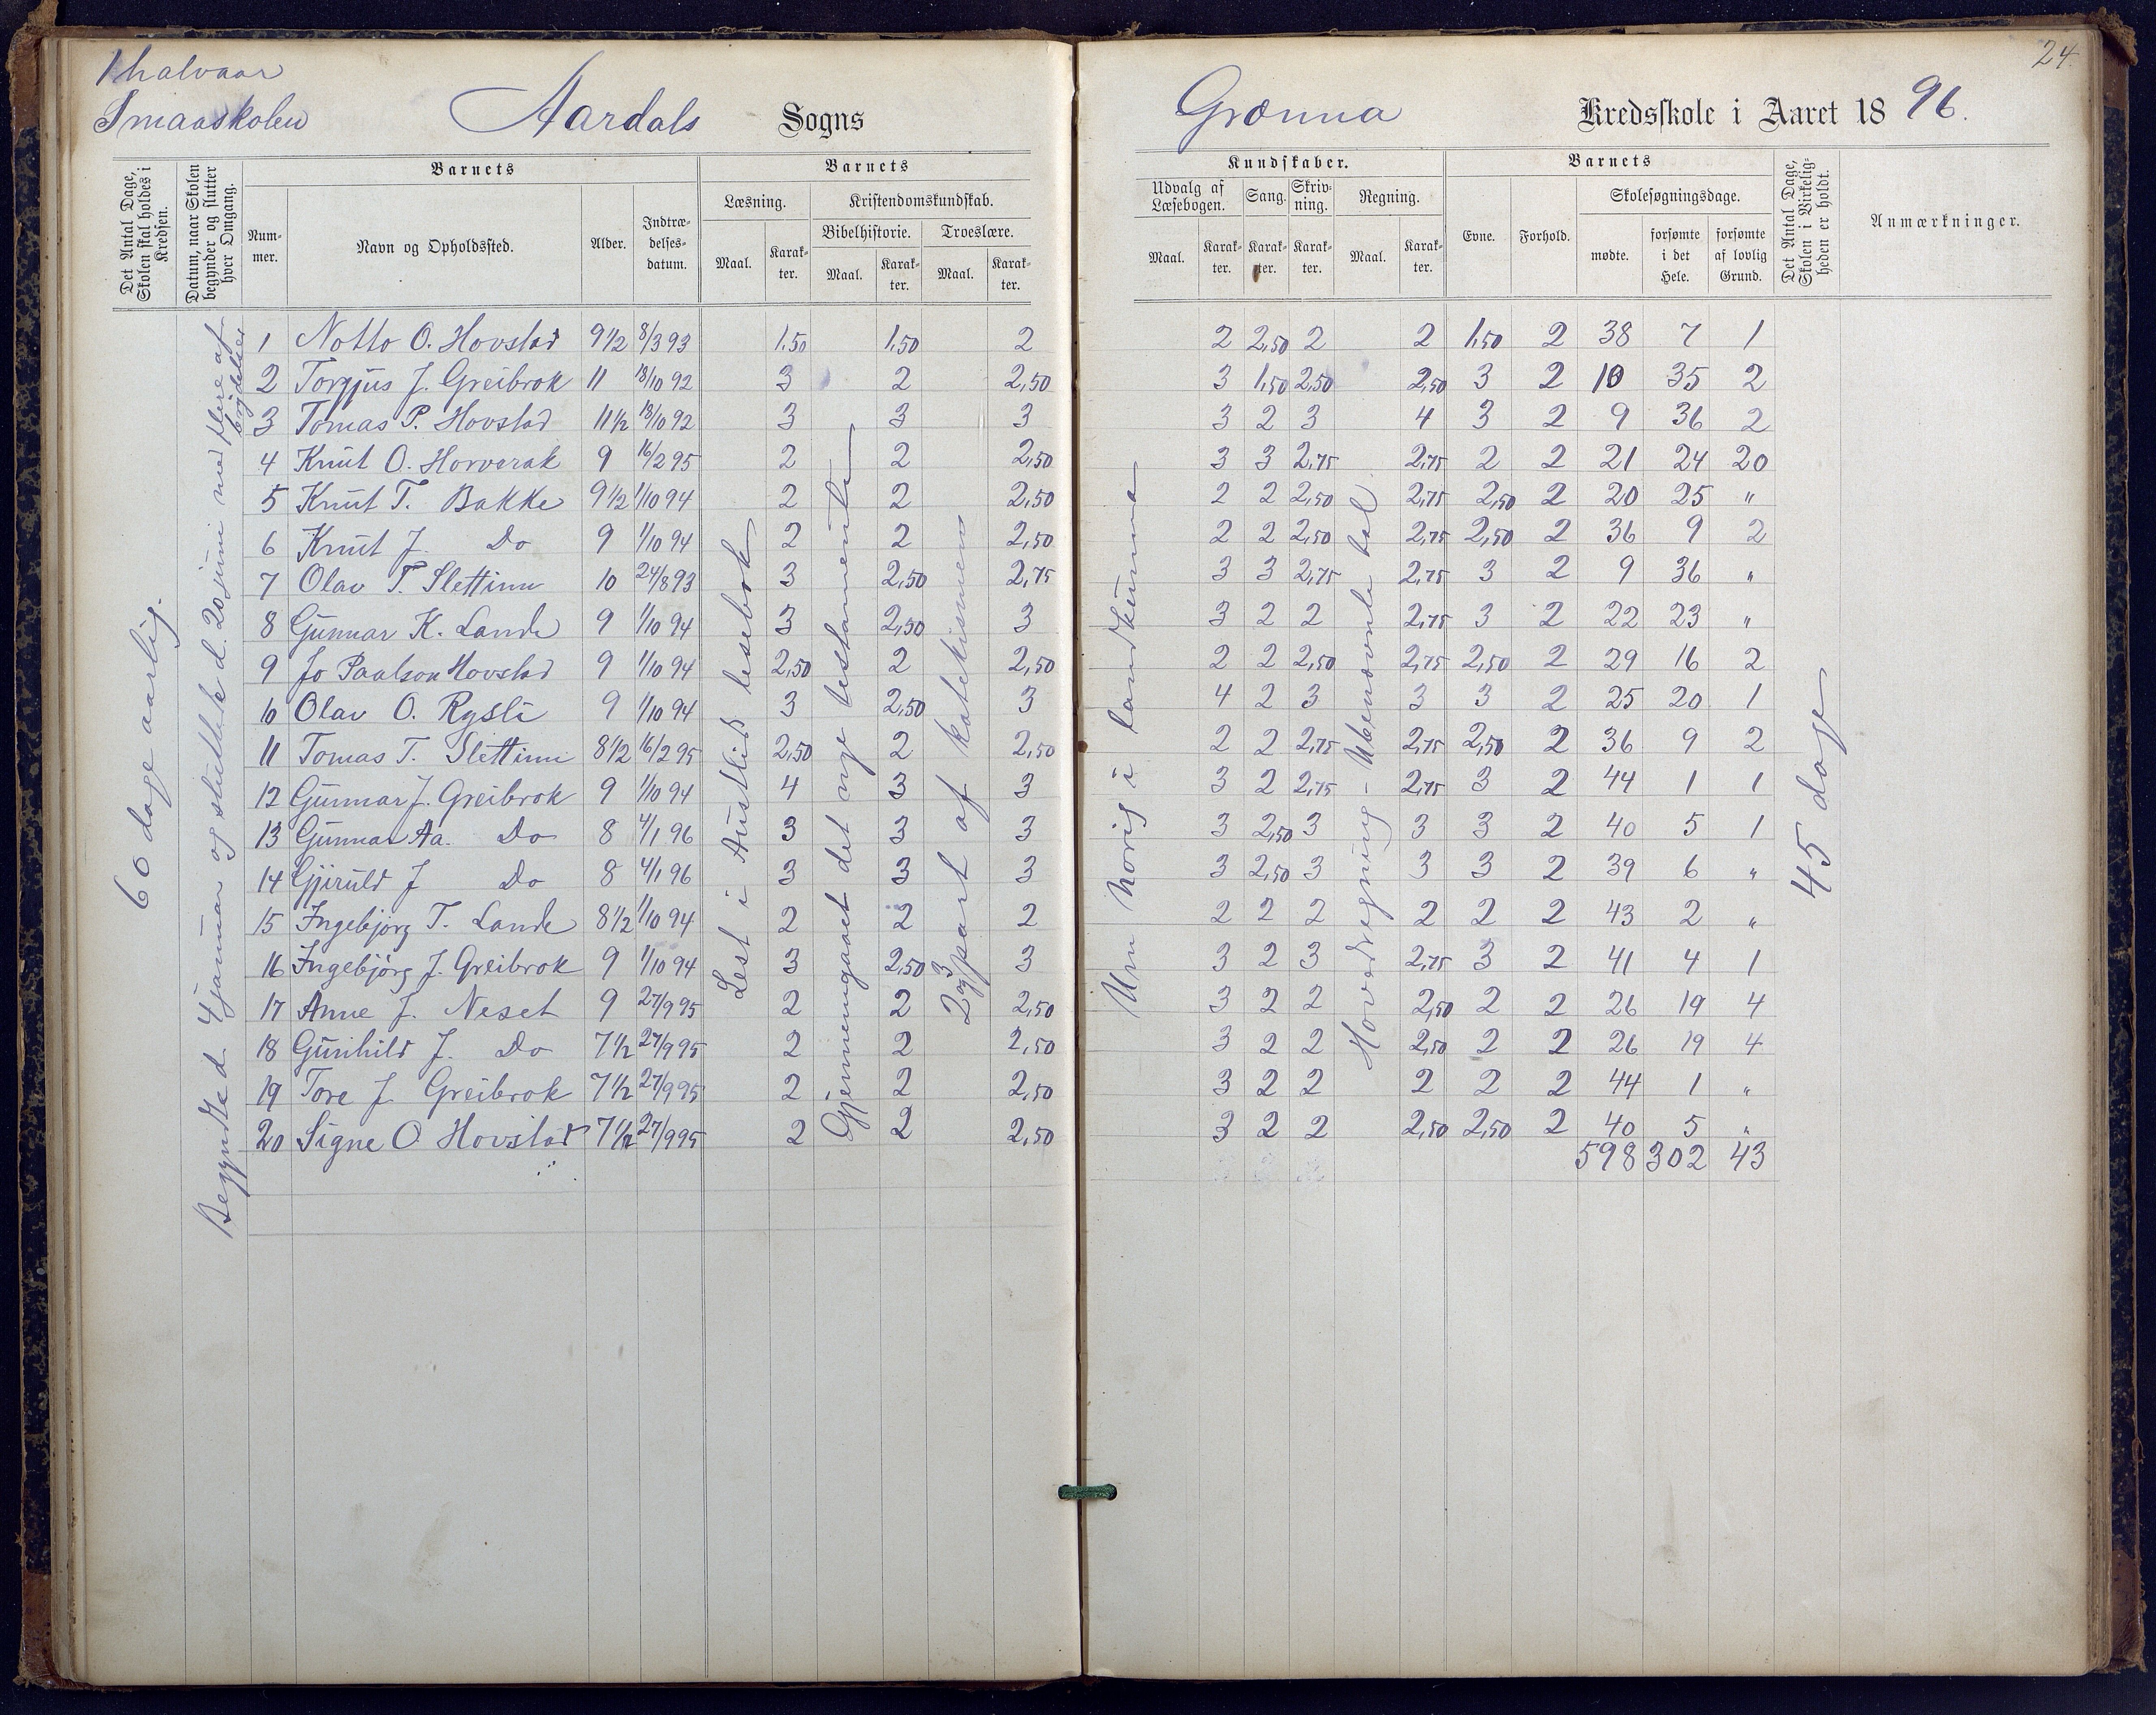 1 halvaar
Smaaskolen
Aardals Sogns
Det Antal Dage, Skolen skal holdes i Kredsen.
Datum, naar Skolen begynder og slutter hver Omgang.
Barnets
Nummer.
Navn og Opholdssted.
Alder.
Indtrædelsesdatum.
Barnets
Læsning.
Maal.
Karakter.
Kristendomskundskab.
Bibelhistorie.
Maal.
Karakter.
Troeslære.
Maal.
Karakter.
60 dage aarlig.
Begyndte d. 4 januar og sluttede d. 20 juni med flere afbrydelser
Lest i Austlids lesebok
Gjennemgaaet det nye testamente
2 og 3 part af katekismen
1 Notto O. Hovstad 9 1/2 8/3 93 1,50 1,50 2
2 Torgjus J. Greibrok 11 18/10 92 3 2 2,50
3 Tomas P. Hovstad 11 1/2 18/10 92 3 3 3
4 Knut O. Horverak 9 16/2 95 2 2 2,50
5 Knut T. Bakke 9 1/2 1/10 94 2 2 2,50
6 Knut J. Do 9 1/10 94 2 2 2,50
7 Olav T. Slettinn 10 24/8 93 3 2,50 2,75
8 Gunnar K. Lande 9 1/10 94 3 2,50 3
9 Jo Paalson Hovstad 9 1/10 94 2,50 2 2,50
10 Olav O. Rysli 9 1/10 94 3 2,50 3
11 Tomas T. Slettinn 8 1/2 16/2 95 2,50 2 2,50
12 Gunnar J. Greibrok 9 1/10 94 4 3 3
13 Gunnar Aa. Do 8 4/1 96 3 3 3
14 Gjeruld J Do 8 4/1 96 3 3 3
15 Ingebjørg T. Lande 8 1/2 1/10 94 2 2 2
16 Ingebjørg J. Greibrok 9 1/10 94 3 2,50 3
17 Anne J. Neset 9 27/9 95 2 2 2,50
18 Gunhild J. Do 7 1/2 27/9 95 2 2 2,50
19 Tore J Greibrok 7 1/2 27/9 95 2 2 2,50
20 Signe O Hovstad 7 1/2 27/9 95 2 2 2,50
24.
Grønna Kredsskole i Aaret 1896.
Kundskaber.
Udvalg af Læsebogen.
Maal.
Karakter.
Sang.
Karakter.
Skrivning.
Karakter.
Regning.
Maal.
Karakter.
Barnets
Evne.
Forhold.
Skolesøgningsdage.
mødte.
forsømte i det Hele.
forsømte af lovlig Grund.
Det Antal Dage, Skolen i Virkeligheden er holdt.
Anmærkninger.
Um Norig i landkunna
Hovedregning - Ubenevnte tal
45 dage
2 2,50 2 2 1,50 2 38 7 1
3 1,50 2,50 2,50 3 2 10 35 2
3 2 3 4 3 2 9 36 2
3 3 2,75 2,75 2 2 21 24 20
2 2 2,50 2,75 2,50 2 20 25 "
2 2 2,50 2,75 2,50 2 36 9 2
3 3 2,75 2,75 3 2 9 36 "
3 2 2 2,75 3 2 22 23 "
2 2 2,50 2,75 2,50 2 29 16 2
4 2 3 3 3 2 25 20 1
2 2 2,75 2,75 2,50 2 36 9 2
3 2 2,75 2,75 3 2 44 1 1
3 2,50 3 3 3 2 40 5 1
3 2,50 3 3 3 2 39 6 "
2 2 2 2 2 2 43 2 "
3 2 3 2,75 3 2 41 4 1
3 2 2 2,50 2 2 26 19 4
3 2 2 2,50 2 2 26 19 4
3 2 2 2 2 2 44 1 "
3 2 2 2,50 2,50 2 40 5 "
598 302 43